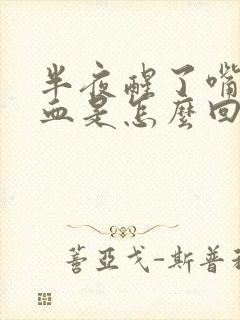 半夜醒了嘴
血是怎麼回
蓍亞戈-斯普